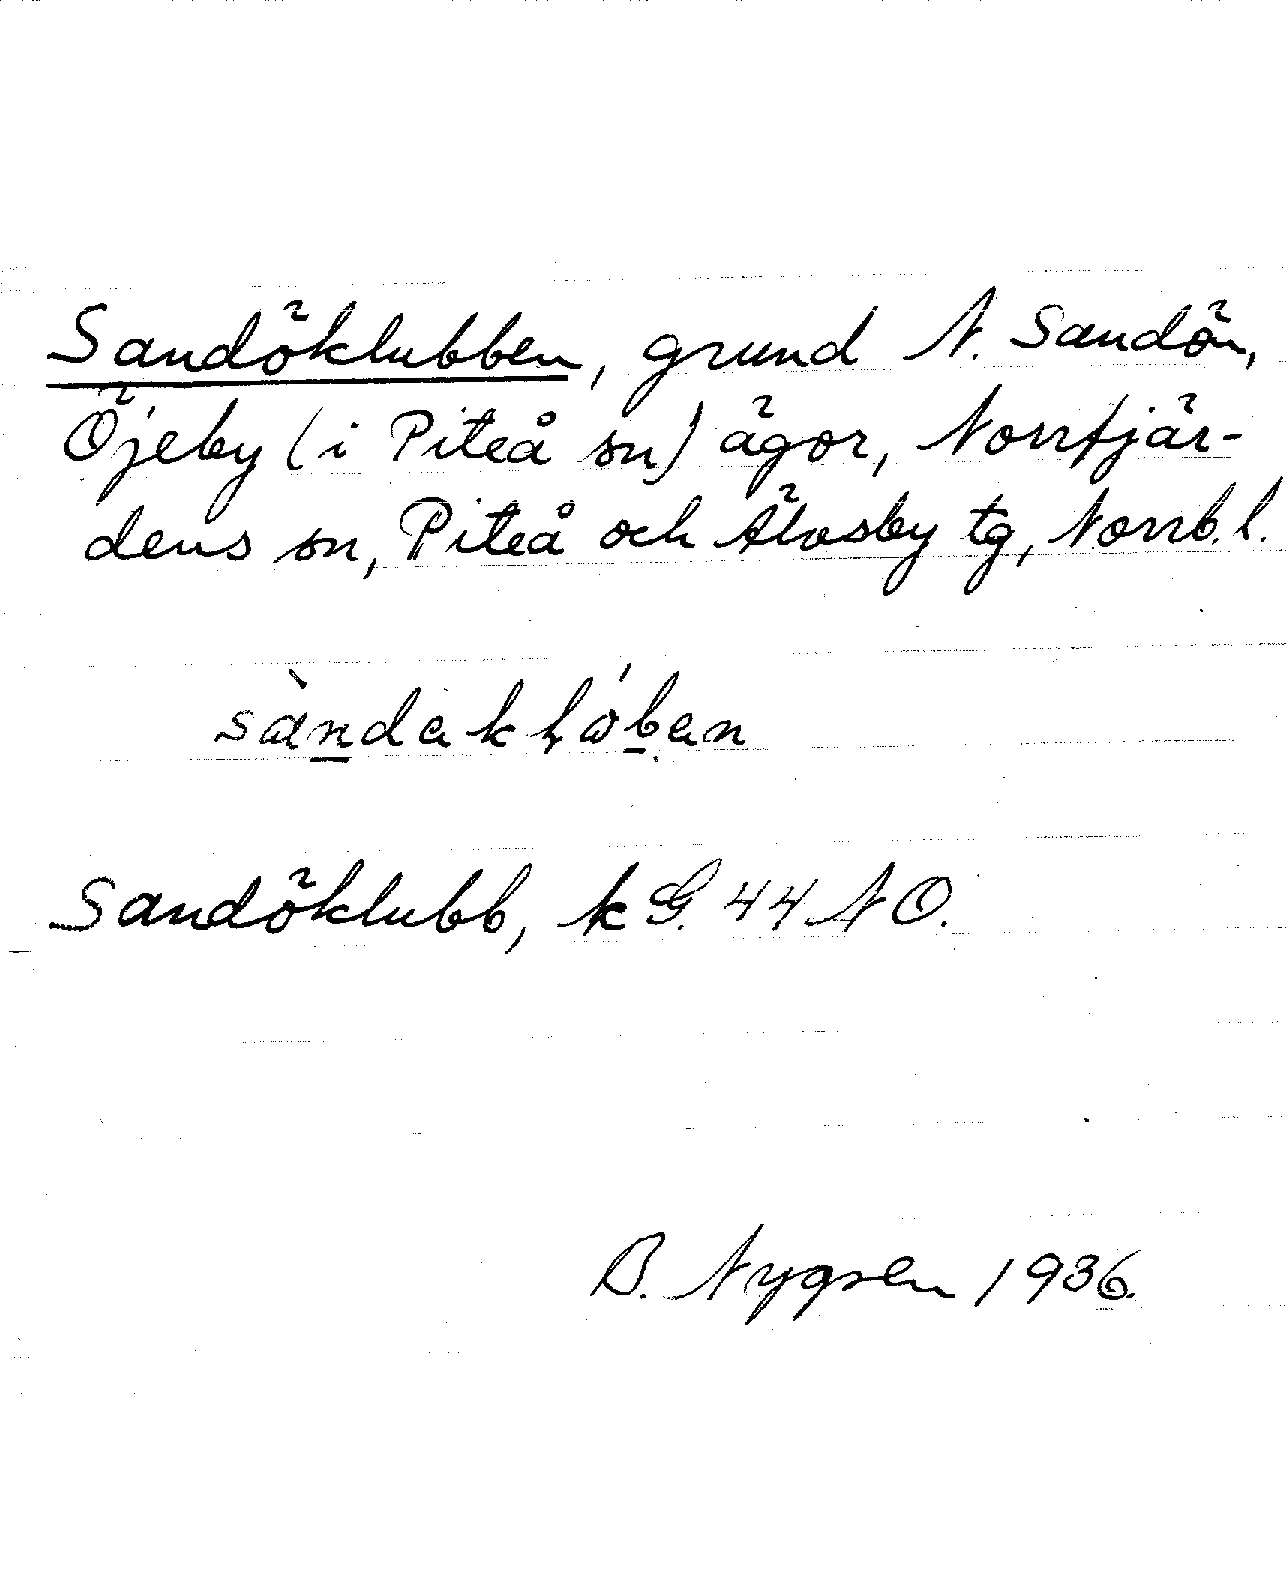 Sandöklubben, grund N. Sandön,
Öjeby (i Piteå sn) ägor, Norrfjär-
dens sn, Piteå och Älvsby tg, Norrb. l.
Sandöklubb, k G. 44 N O.
B. Nygren 1936.